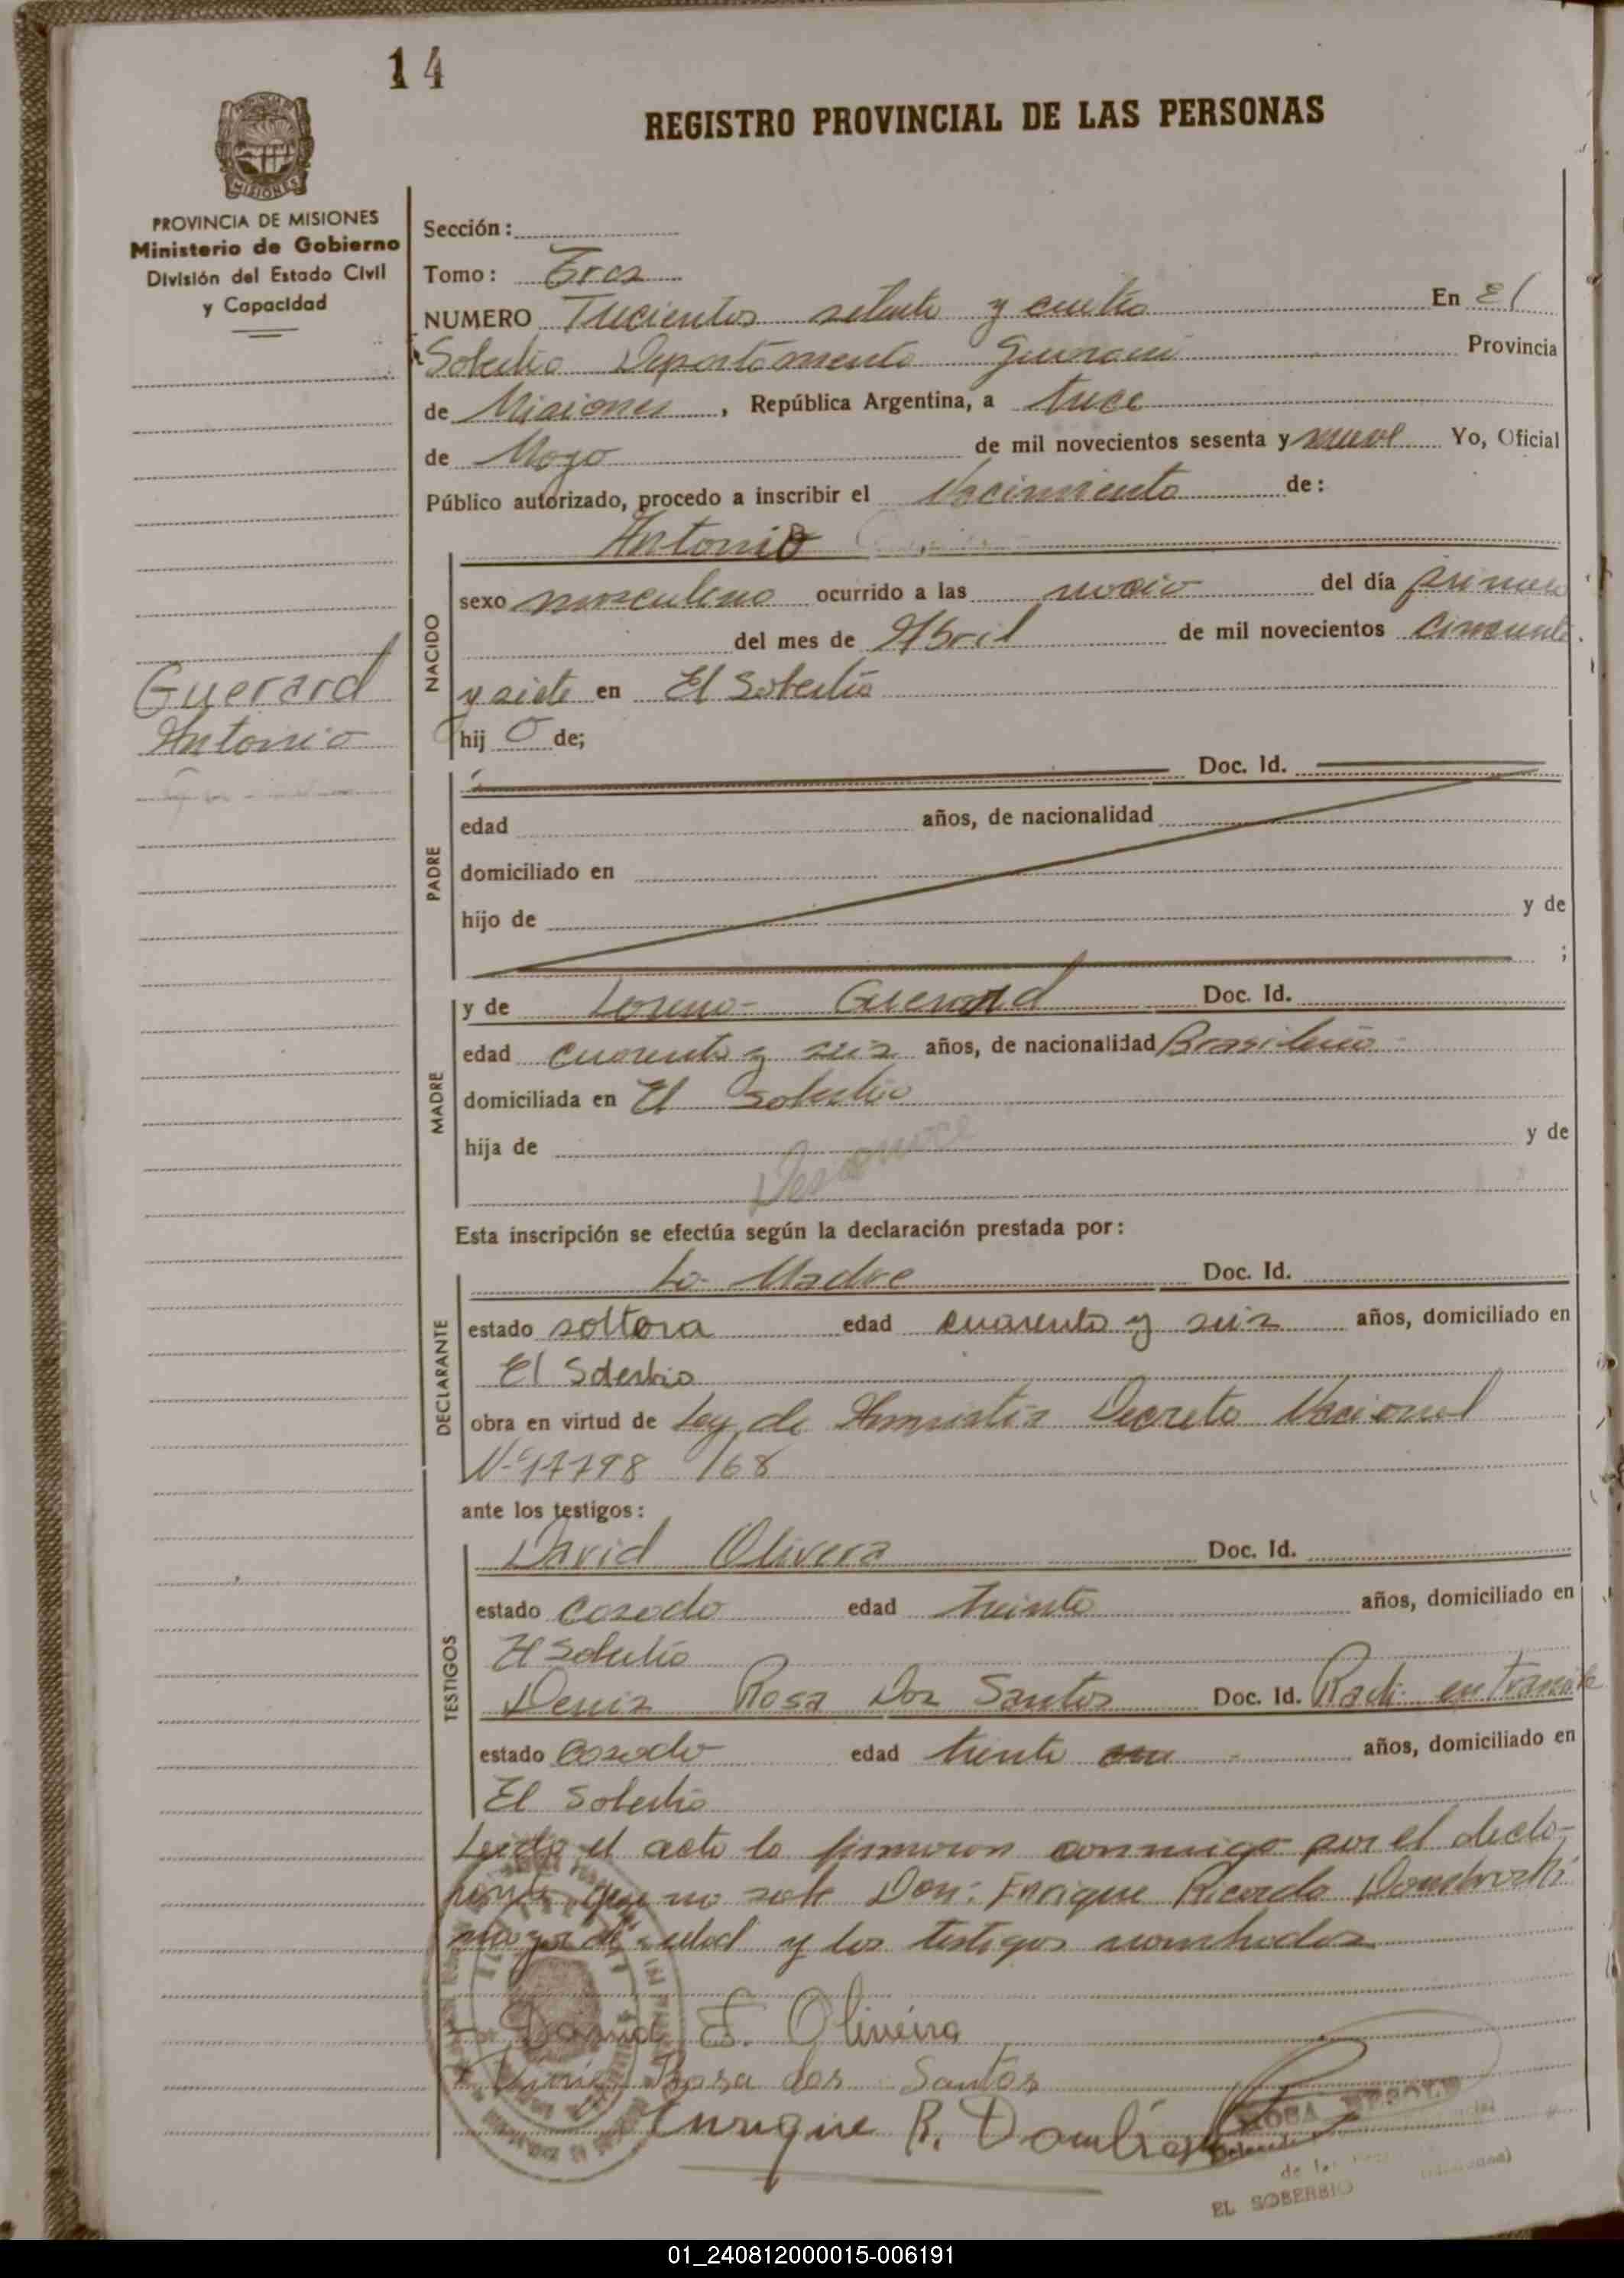 14
REGISTRO PROVINCIAL DE LAS PERSONAS
MISIONES
PROVINCIA DE MISIONES
Ministerio de Gobierno
División del Estado Civil
y Capacidad
Sección:
Tomo: Tres
NUMERO Trecientos setenta y cuatro En El
Soberbio Departamento Guarani Provincia
de Misiones, República Argentina, a trece
de Mayo de mil novecientos sesenta y nueve Yo, Oficial
Público autorizado, procedo a inscribir el Nacimiento de:
Antonio
NACIDO
sexo masculino ocurrido a las del día primero
del mes de Abril de mil novecientos cincuenta
y siete en El Soberbio
hij o de;
Guerard
Antonio
PADRE
Doc. Id.
edad años, de nacionalidad
domiciliado en
hijo de y de
;
MADRE
y de Guerard Doc. Id.
edad cuarenta y seis años, de nacionalidad Brasileña
domiciliada en El Soberbio
hija de y de
Desconoce
Esta inscripción se efectúa según la declaración prestada por:
DECLARANTE
La Madre Doc. Id.
estado soltera edad cuarenta y seis años, domiciliado en
El Soberbio
obra en virtud de Ley de Amnistia Decreto Nacional
Nº 17798/68
ante los testigos:
TESTIGOS
David Olivera Doc. Id.
estado casado edad treinta años, domiciliado en
El Soberbio
Deniz Rosa Dos Santos Doc. Id. Radi. en Tramite
estado casado edad treinta años, domiciliado en
El Soberbio
Leida el acta la firmaron conmigo por el decla-
rante que no sabe Don: Enrique Ricardo Dombroski
mayor de edad y los testigos nombrados
David E. Oliveira
Rosa dos Santos
Enrique R.
EL SOBERBIO
01_240812000015-006191